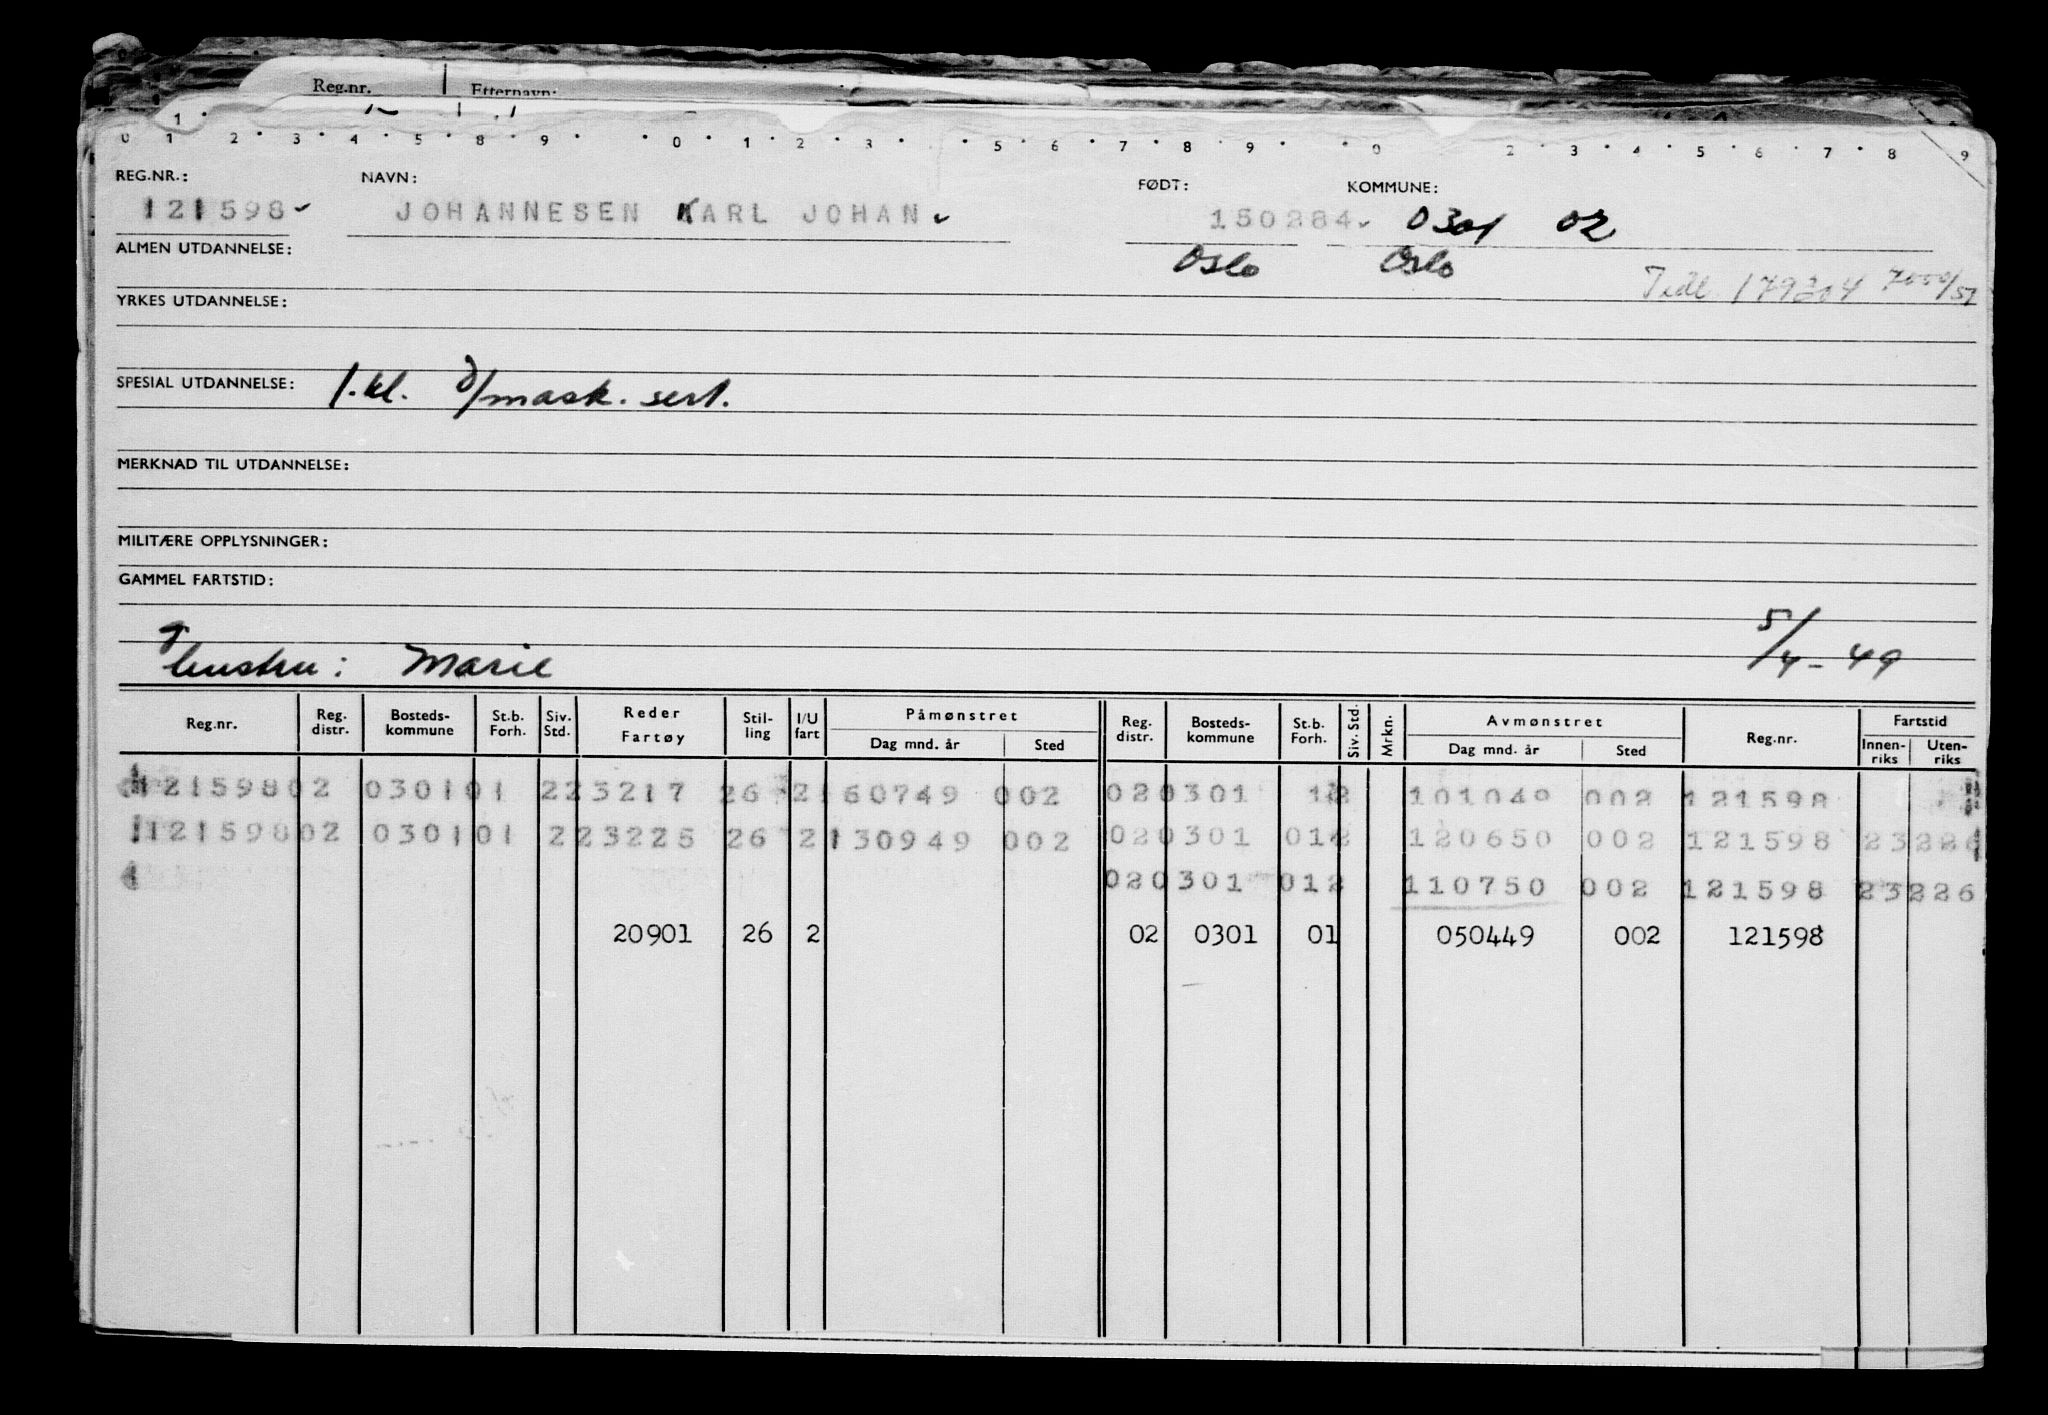 Reg.nr. Etternavn:
1
0 1 2 3 4 5 8 9 0 1 2 3 5 6 7 8 9 0 2 3 4 5 6 7 8 9
REG.NR.: NAVN: FØDT: KOMMUNE:
121598 JOHANNESEN KARL JOHAN 150284 0301 02
ALMEN UTDANNELSE: Oslo Oslo
Tidl. 179204
YRKES UTDANNELSE:
SPESIAL UTDANNELSE: 1.kl. d/mask. sert.
MERKNAD TIL UTDANNELSE:
MILITÆRE OPPLYSNINGER:
GAMMEL FARTSTID:
Hustru: Marie 5/4-49
Reg.nr. Reg. distr. Bosteds-kommune St.b. Forh. Siv. Std. Reder Fartøy Stil-ling I/U fart Påmønstret Dag mnd. år Sted Reg. distr. Bosteds-kommune St.b. Forh. Siv. Std. Mrkn. Avmønstret Dag mnd. år Sted Reg.nr. Fartstid Innen-riks Uten-riks
12159802 030101 223217 26 2160749 002 020301 12 101049 002 121598
12159802 030101 223225 26 2130949 002 020301 012 120650 002 121598 23226
020301 012 110750 002 121598 23226
20901 26 2 02 0301 01 050449 002 121598